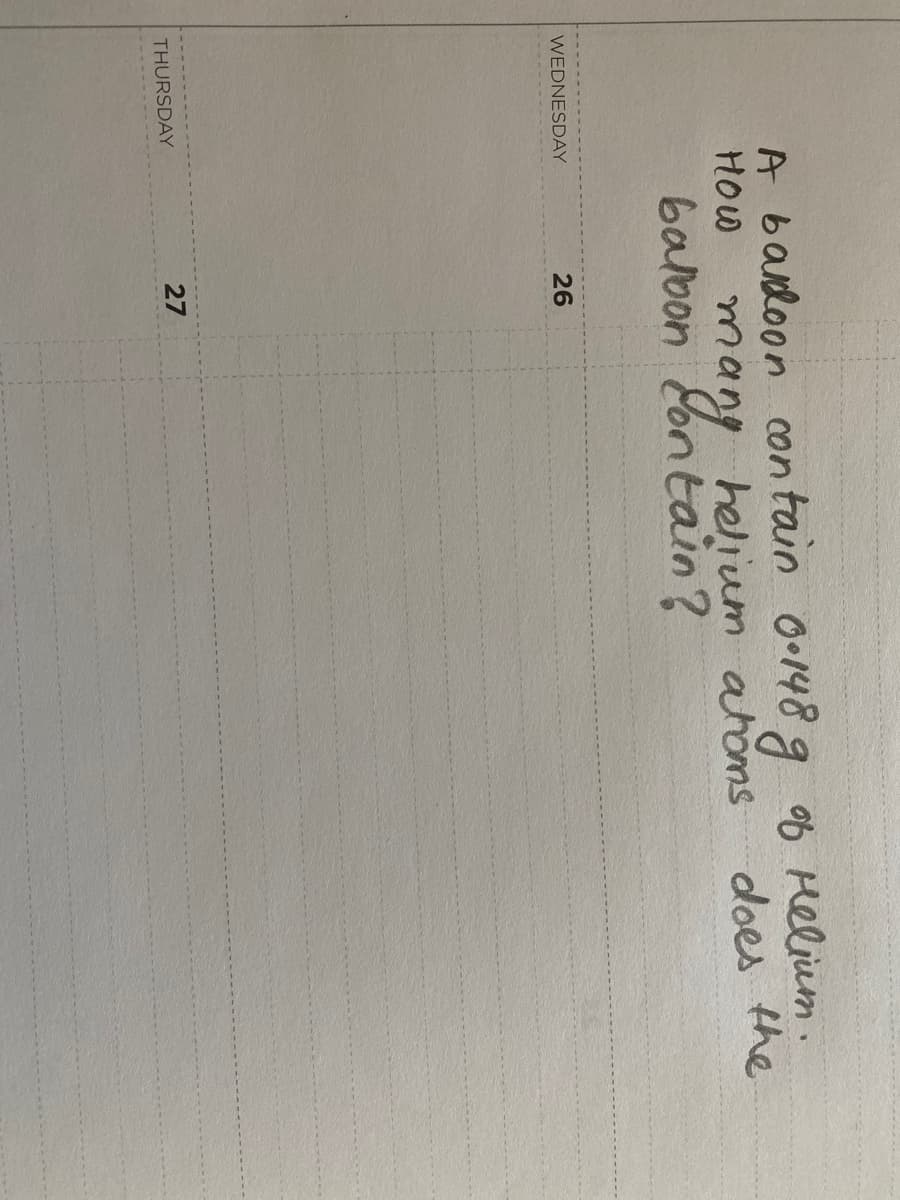 A balloon contain 0.148 g of Helium.
How many helium atoms does the
balloon contain?
WEDNESDAY 26
THURSDAY 27